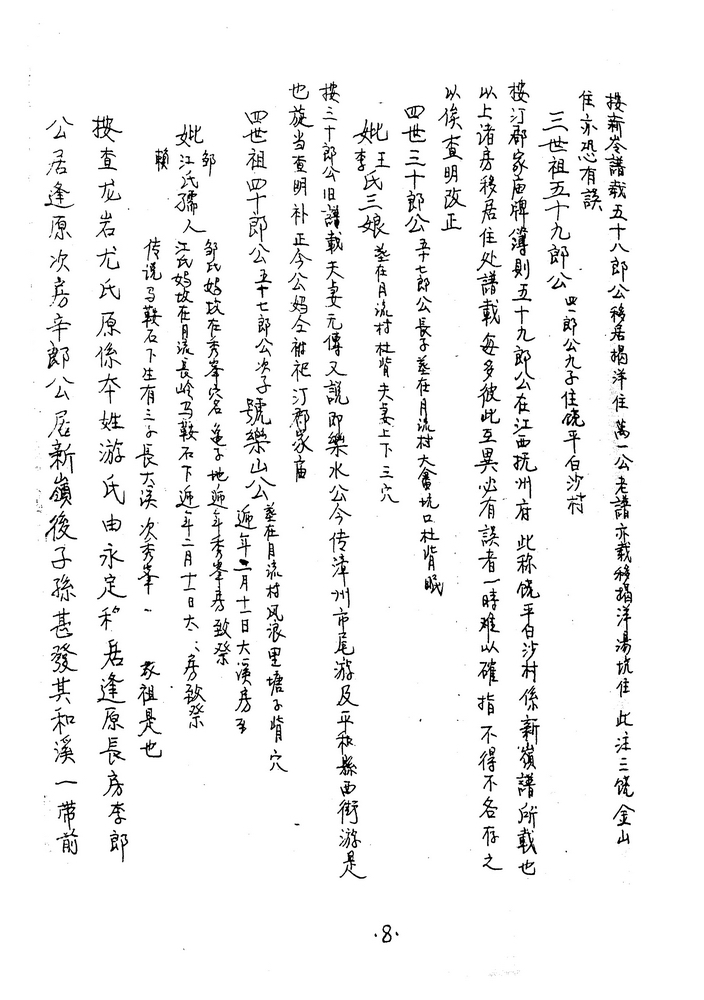 按新岺譜載五十八郎公移居揭洋住 萬一公老譜亦載移揭洋湯坑住 此注三饶金山
住亦恐有誤
三世祖五十九郎公 四一郎公九子住饶平白沙村
按汀郡家庙牌簿則五十九郎公在江西抚州府 此称饶平白沙村係新嶺譜所載也
以上诸房移居住处譜載每多彼此互異必有誤者一時难以確指 不得不各存之
以俟查明改正
四世三十郎公 五十七郎公長子墓在月流村大畲坑口杜背眠
妣王李氏三娘 墓在月流村杜背夫妻上下三穴
按三十郎公旧譜載夫妻元傳又説即樂水公今传漳州市尾游及平和縣西街游是
也旋当查明补正今公妈仝祔祀汀郡家庙
四世祖四十郎公 五十七郎公次子 號樂山公 墓在月流村风浪里塘子背穴
近年二月十一日大溪房至
妣邹江賴氏孺人 邹氏妈坟在秀峯穴名龟子地近年秀峯房致祭
江氏妈坟在月流長岭马鞍石下近年二月十一日大溪房致祭
传说马鞍石下生有三子長大溪次秀峯一 家祖是也
按查龙岩尤氏原係本姓游氏由永定移居逢原長房李郎
公居逢原次房辛郎公居新嶺後子孫甚發其和溪一帶前
·8·